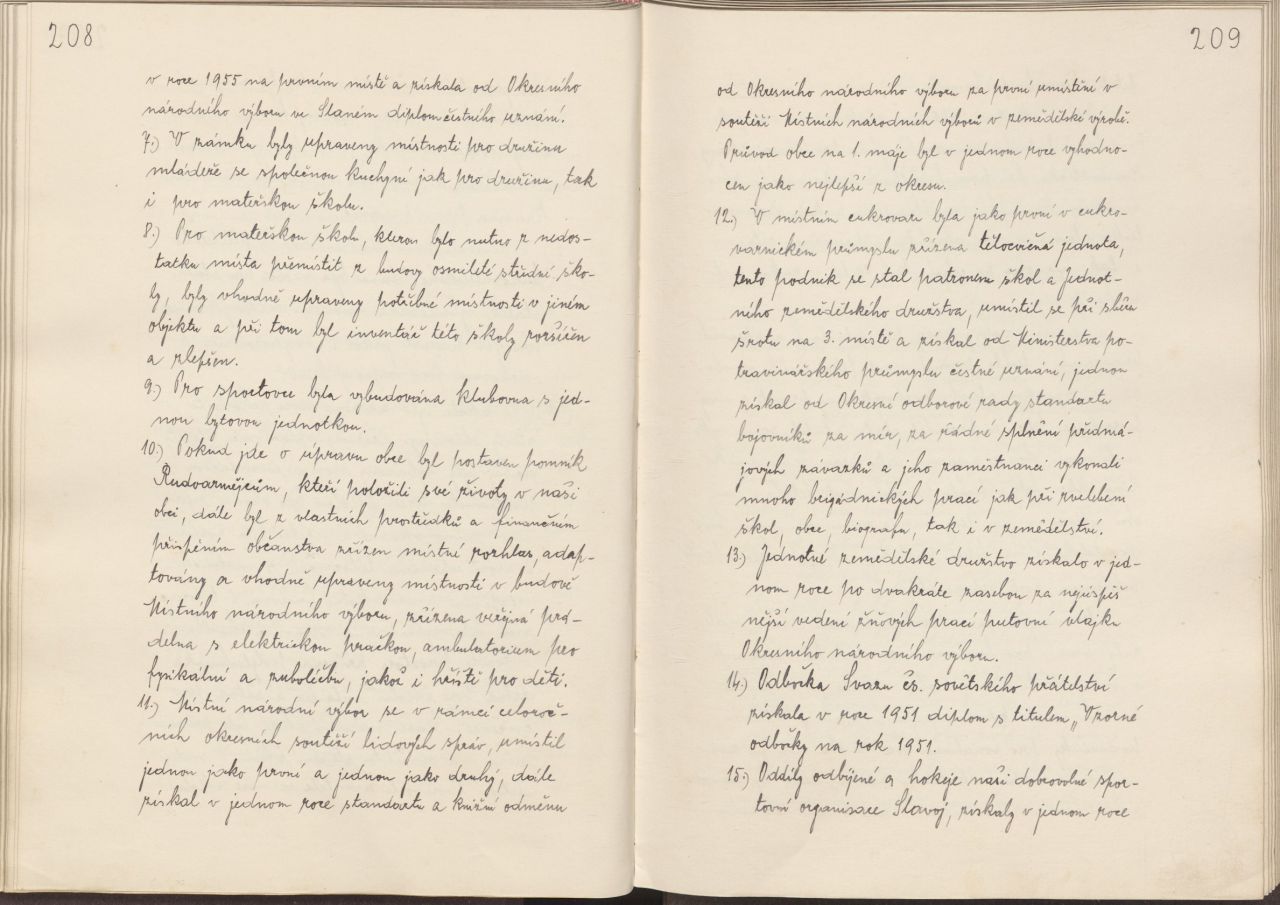 208
v roce 1955 na prvním místě a získala od Okresního
národního výboru ve Slaném diplom čestného uznání.
7.) V zámku byly upraveny místnosti pro družinu
mládeže se společnou kuchyní jak pro družinu, tak
i pro mateřskou školu.
8.) Pro mateřskou školu, kterou bylo nutno z nedos-
tatku místa přemístit z budovy osmileté střední ško-
ly, byly vhodně upraveny potřebné místnosti v jiném
objektu a při tom byl inventář této školy rozšířen
a zlepšen.
9.) Pro sportovce byla vybudována klubovna s jed-
nou bytovou jednotkou.
10.) Pokud jde o úpravu obce byl postaven pomník
Rudoarmějcům, kteří položili své životy v naší
obci, dále byl z vlastních prostředků a finančním
přispěním občanstva zřízen místní rozhlas, adap-
továny a vhodně upraveny místnosti v budově
Místního národního výboru, zřízena veřejná prá-
delna s elektrickou pračkou, ambulatorium pro
fysikální a zuboléčbu, jakož i hřiště pro děti.
11.) Místní národní výbor se v rámci celoroč-
ních okresních soutěží lidových správ, umístil
jednou jako první a jednou jako druhý, dále
získal v jednom roce standartu a knižní odměnu
209
od Okresního národního výboru za první umístění v
soutěži Místních národních výborů v zemědělské výrobě.
Průvod obce na 1. máje byl v jednom roce vyhodno-
cen jako nejlepší z okresu.
12.) V místním cukrovaru byla jako první v cukro-
varnickém průmyslu zřízena tělocvičná jednota,
tento podnik se stal patronem škol a Jednot-
ného zemědělského družstva, umístil se při sběru
šrotu na 3. místě a získal od Ministerstva po-
travinářského průmyslu čestné uznání, jednou
získal od Okresní odborové rady standartu
bojovníků za mír, za řádné splnění předmá-
jových závazků a jeho zaměstnanci vykonali
mnoho brigádnických prací jak při zvelebení
škol, obce, biografu, tak i v zemědělství.
13.) Jednotné zemědělské družstvo získalo v jed-
nom roce po dvakráte zasebou za nejúspěš
nější vedení žňových prací putovní vlajku
Okresního národního výboru.
14.) Odbočka Svazu čs. sovětského přátelství
získala v roce 1951 diplom s titulem „Vzorné
odbočky na rok 1951.
15.) Oddíly odbíjené a hokeje naší dobrovolné spor-
tovní organisace Slavoj, získaly v jednom roce